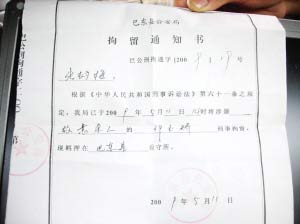 巴东县公安局
拘留通知书
巴公刑拘通字[2009] 号
根据《中华人民共和国刑事诉讼法》第六十一条之规
定，我局于2009年5月11日 时将涉嫌
故意杀人 的 邓玉娇 刑事拘留，
现羁押在 巴东县 看守所。
2009年5月11日